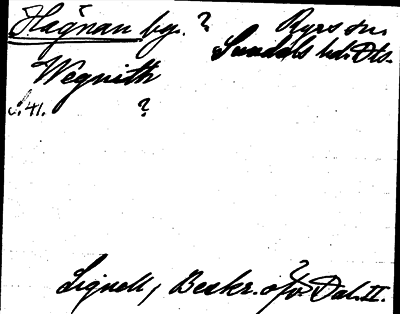 Hågnan bg. ? Ryrs sn.
Sundals hd. Dls.
Wegnith
s. 41. ?
Lignell, Beskr. öfv. Dal. II.